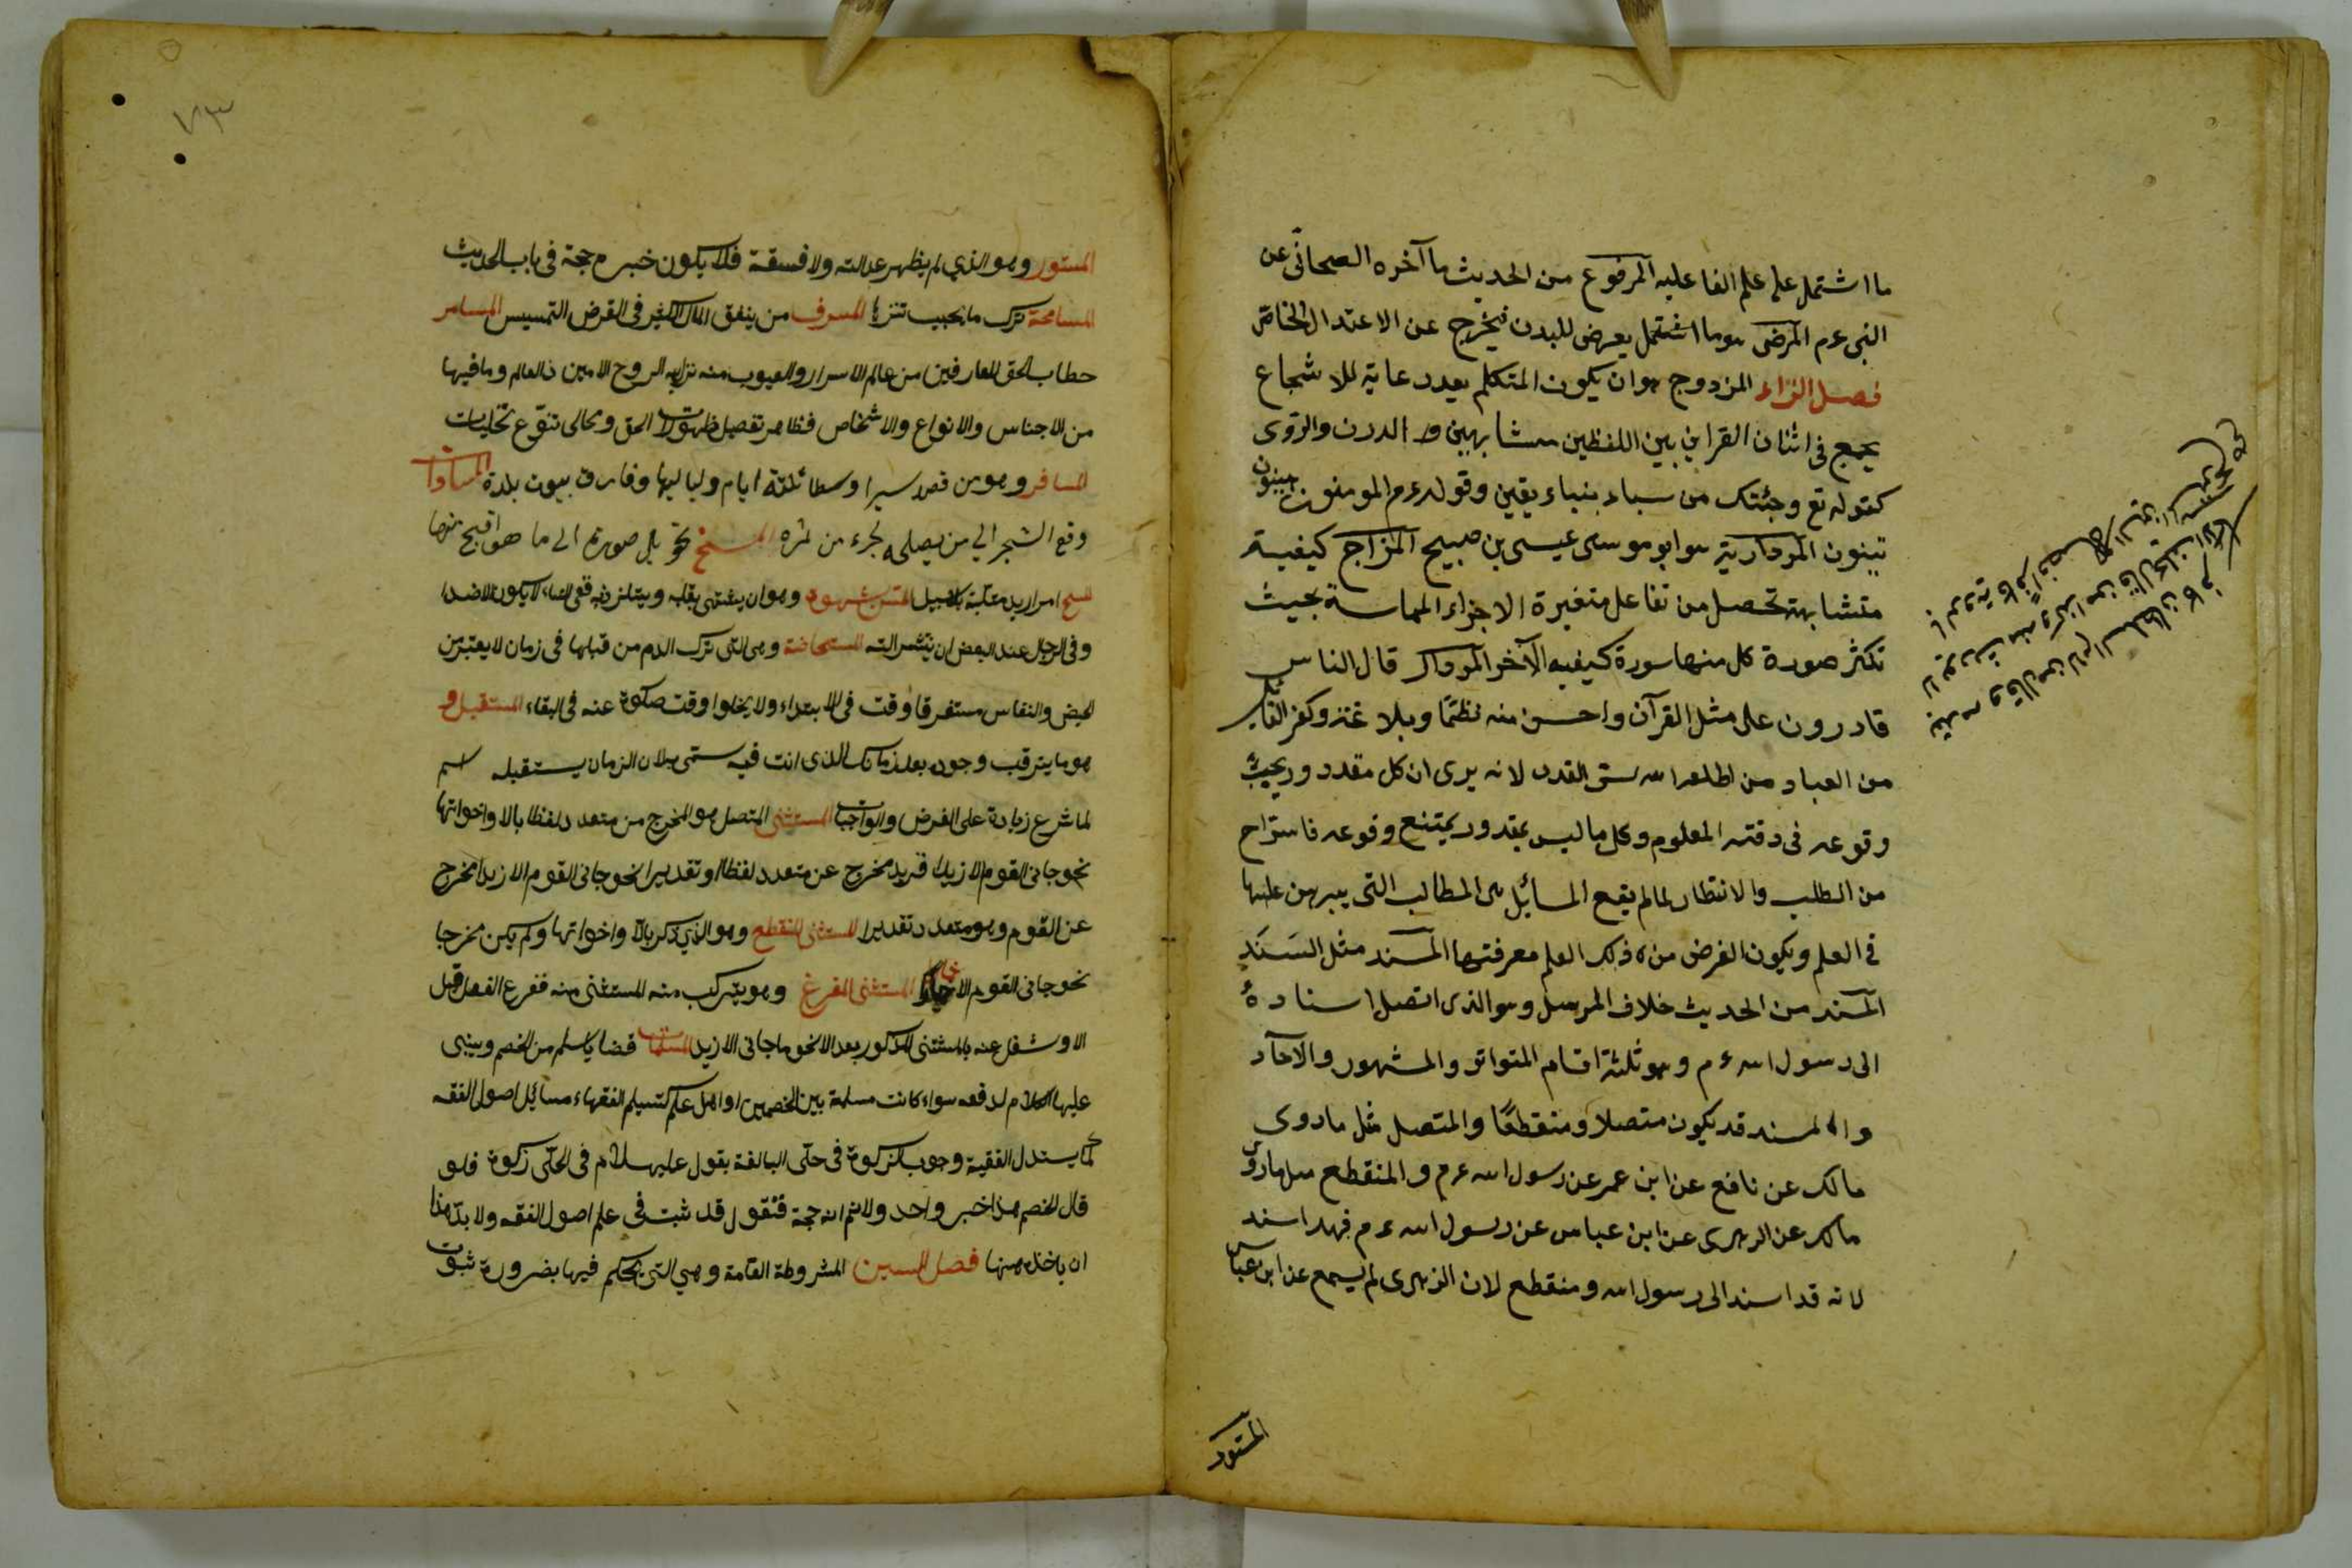 ما اشتمل على علم الفاعلية المرفوع من الحديث ما آخره الصحابى عن
النبى عم المرضى هو ما اشتمل يعرض للبدن فيخرج عن الاعتدال الخاص
فصل الزاء المزدوج هو ان يكون المتكلم بعد رعاية للاشجاع
يجمع فى اثنان القراين بين اللفظين متشابهين و الدرن والروى
كقوله تع وجئتك من سباء بنباء يقين وقوله عم المومنون هينون
تينون المردارية هو ابو موسى عيسى بن صبيح المزاج كيفية
متشابهة تحصل من تفاعل متغيرة الاجزاء المماسة بحيث
تكثر صورة كل منها سورة كيفيه الآخر المردار قال الناس
قادرون على مثل القرآن واحسن منه نظما وبلاغة وكفر القائل
من العباد من اطلعه الله ستر القدر لانه يرى ان كل مقدور يجب
وقوعه فى وقته المعلوم وكل ما ليس بمقدور يمتنع وقوعه فاستراح
من الطلب والانتظار لما لم يقع المسائل هى المطالب التى يبرهن عليها
فى العلم ويكون الغرض من ذلك العلم معرفتها المسند مثل السند
المسند من الحديث خلاف المرسل وهو الذى اتصل اسناده
الى رسول الله عم وهو ثلثة اقسام المتواتر والمشهور والآحاد
والمسند قد يكون متصلا ومنقطعا والمتصل مثل ما روى
مالك عن نافع عن ابن عمر عن رسول الله عم والمنقطع مثل ما روى
مالك عن الزهرى عن ابن عباس عن رسول الله عم فهذا اسند
لانه قد اسند الى رسول الله ومنقطع لان الزهرى لم يسمع عن ابن عباس
المستور
٧٣
المستور وهو الذي لم يظهر عدالته ولا فسقه فلا يكون خبره حجة فى باب الحديث
المسامحة ترك ما يجب تنزها المسرف من ينفق المال الكثير فى الغرض الخسيس المسامر
خطاب الحق للعارفين من عالم الاسرار والغيوب منه نزل به الروح الامين فالعالم وما فيها
من الاجناس والانواع والاشخاص فظاهر تفصيل ظهورات الحق ومجالى تنوع تجليات
المسافر وهو من قصد سيرا وسطا ثلثة ايام ولياليها وفارق بيوت بلدة المساقاة
وقع الشجر الى من يصلحه بجزء من ثمره المسخ تحويل صورته الى ما هو اقبح منها
المسح امرار يد مبتلة بلا تسييل المس بشهوة وهو ان يشتهى بقلبه ويتلذذ به ففى النساء لا يكون الا هذا
وفى الرجال عند البعض ان تنتشر آلته المستحاضة وهى التى ترى الدم من قبلها فى زمان لا يعتبر من
الحيض والنفاس مستغرقا وقت فى الابتداء ولا يخلوا وقت صلوة عنه فى البقاء المستقبل و
هو ما يترقب وجوده بعد زمانك الذى انت فيه سمى به لان الزمان يستقبله اسم
لما شرع زيادة على الفرض والواجبات المستثنى المتصل هو المخرج من متعدد لفظا بالا واخواتها
نحو جانى القوم الا زيدا فزيد مخرج عن متعدد لفظا او تقديرا نحو جانى القوم الا زيدا مخرج
عن القوم وهو متعدد تقديرا المستثنى المنقطع وهو الذي ذكر بالا واخواتها ولم يكن مخرجا
نحو جانى القوم الا حمارا المستثنى المفرغ وهو يترك منه المستثنى منه ففرغ الفعل قبل
الا وشغل عنه بالمستثنى المذكور بعد الا نحو ما جانى الا زيد المسلمات قضايا تسلم من الخصم ويبنى
عليها الكلام لدفعه سواء كانت مسلمة بين الخصمين او اهل علم كتسليم الفقهاء مسائل اصول الفقه
كما يستدل الفقيه وجوب الزكوة فى حلى البالغة بقول عليه السلام فى الحلى زكوة فلو
قال الخصم هذا خبر واحد ولا نم انه حجة فنقول قد ثبت فى علم اصول الفقه ولا بد هنا
ان ياخذه منها فصل السين المشروطة العامة وهي التى يحكم فيها بضرورة ثبوت